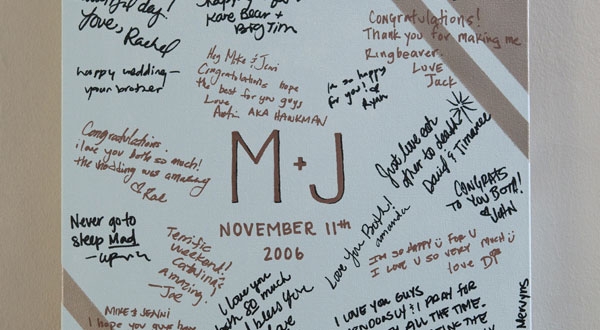 day!
Love, Rachel
Kare Bear +
Big Tim
Congratulations!
Thank you for making me
Ringbearer.
LOVE
Jack
happy wedding-
your brother
Hey Mike & Jenni
Congratulations hope
the best for you guys
Love,
AKA HANKMAN
im so happy
for you!
Ryan
Congratulations.
i love you both so much!
the wedding was amazing
Rae
M+J
NOVEMBER 11th
2006
Just love each
other to death!
David & Timanee
CONGRATS
TO YOU BOTH!
JOHN
Never go to
sleep Mad
Love You Both!
amanda
Terrific
weekend!
Catalina's
Amazing!
-Joe
IM SO HAPPY FOR U
I LOVE U SO VERY MUCH
love
I love you
both so much
bless you
MIKE & JENNI
I hope you guys have
I LOVE YOU GUYS
& I PRAY FOR
ALL THE TIME.
IN THE
Mervyns